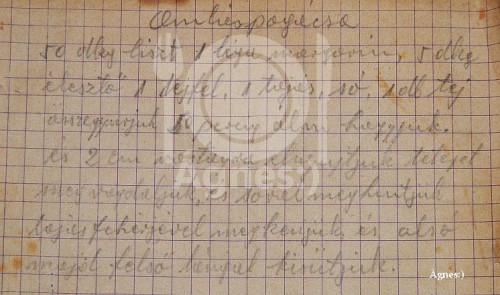 Omlós pogácsa
50 dkg liszt 1 liga margarin, 5 dkg
élesztő 1 tejfel, 1 tojás, só, 1 db tej
összegyúrjuk 5 percig állni hagyjuk.
és 2 cm kinyujtjuk tetejét
és sóval meghintjük
tojásfehérjével megkenjük és alsó
majd felső lánggal kisütjük.
Agnes:)
Ágnes:)